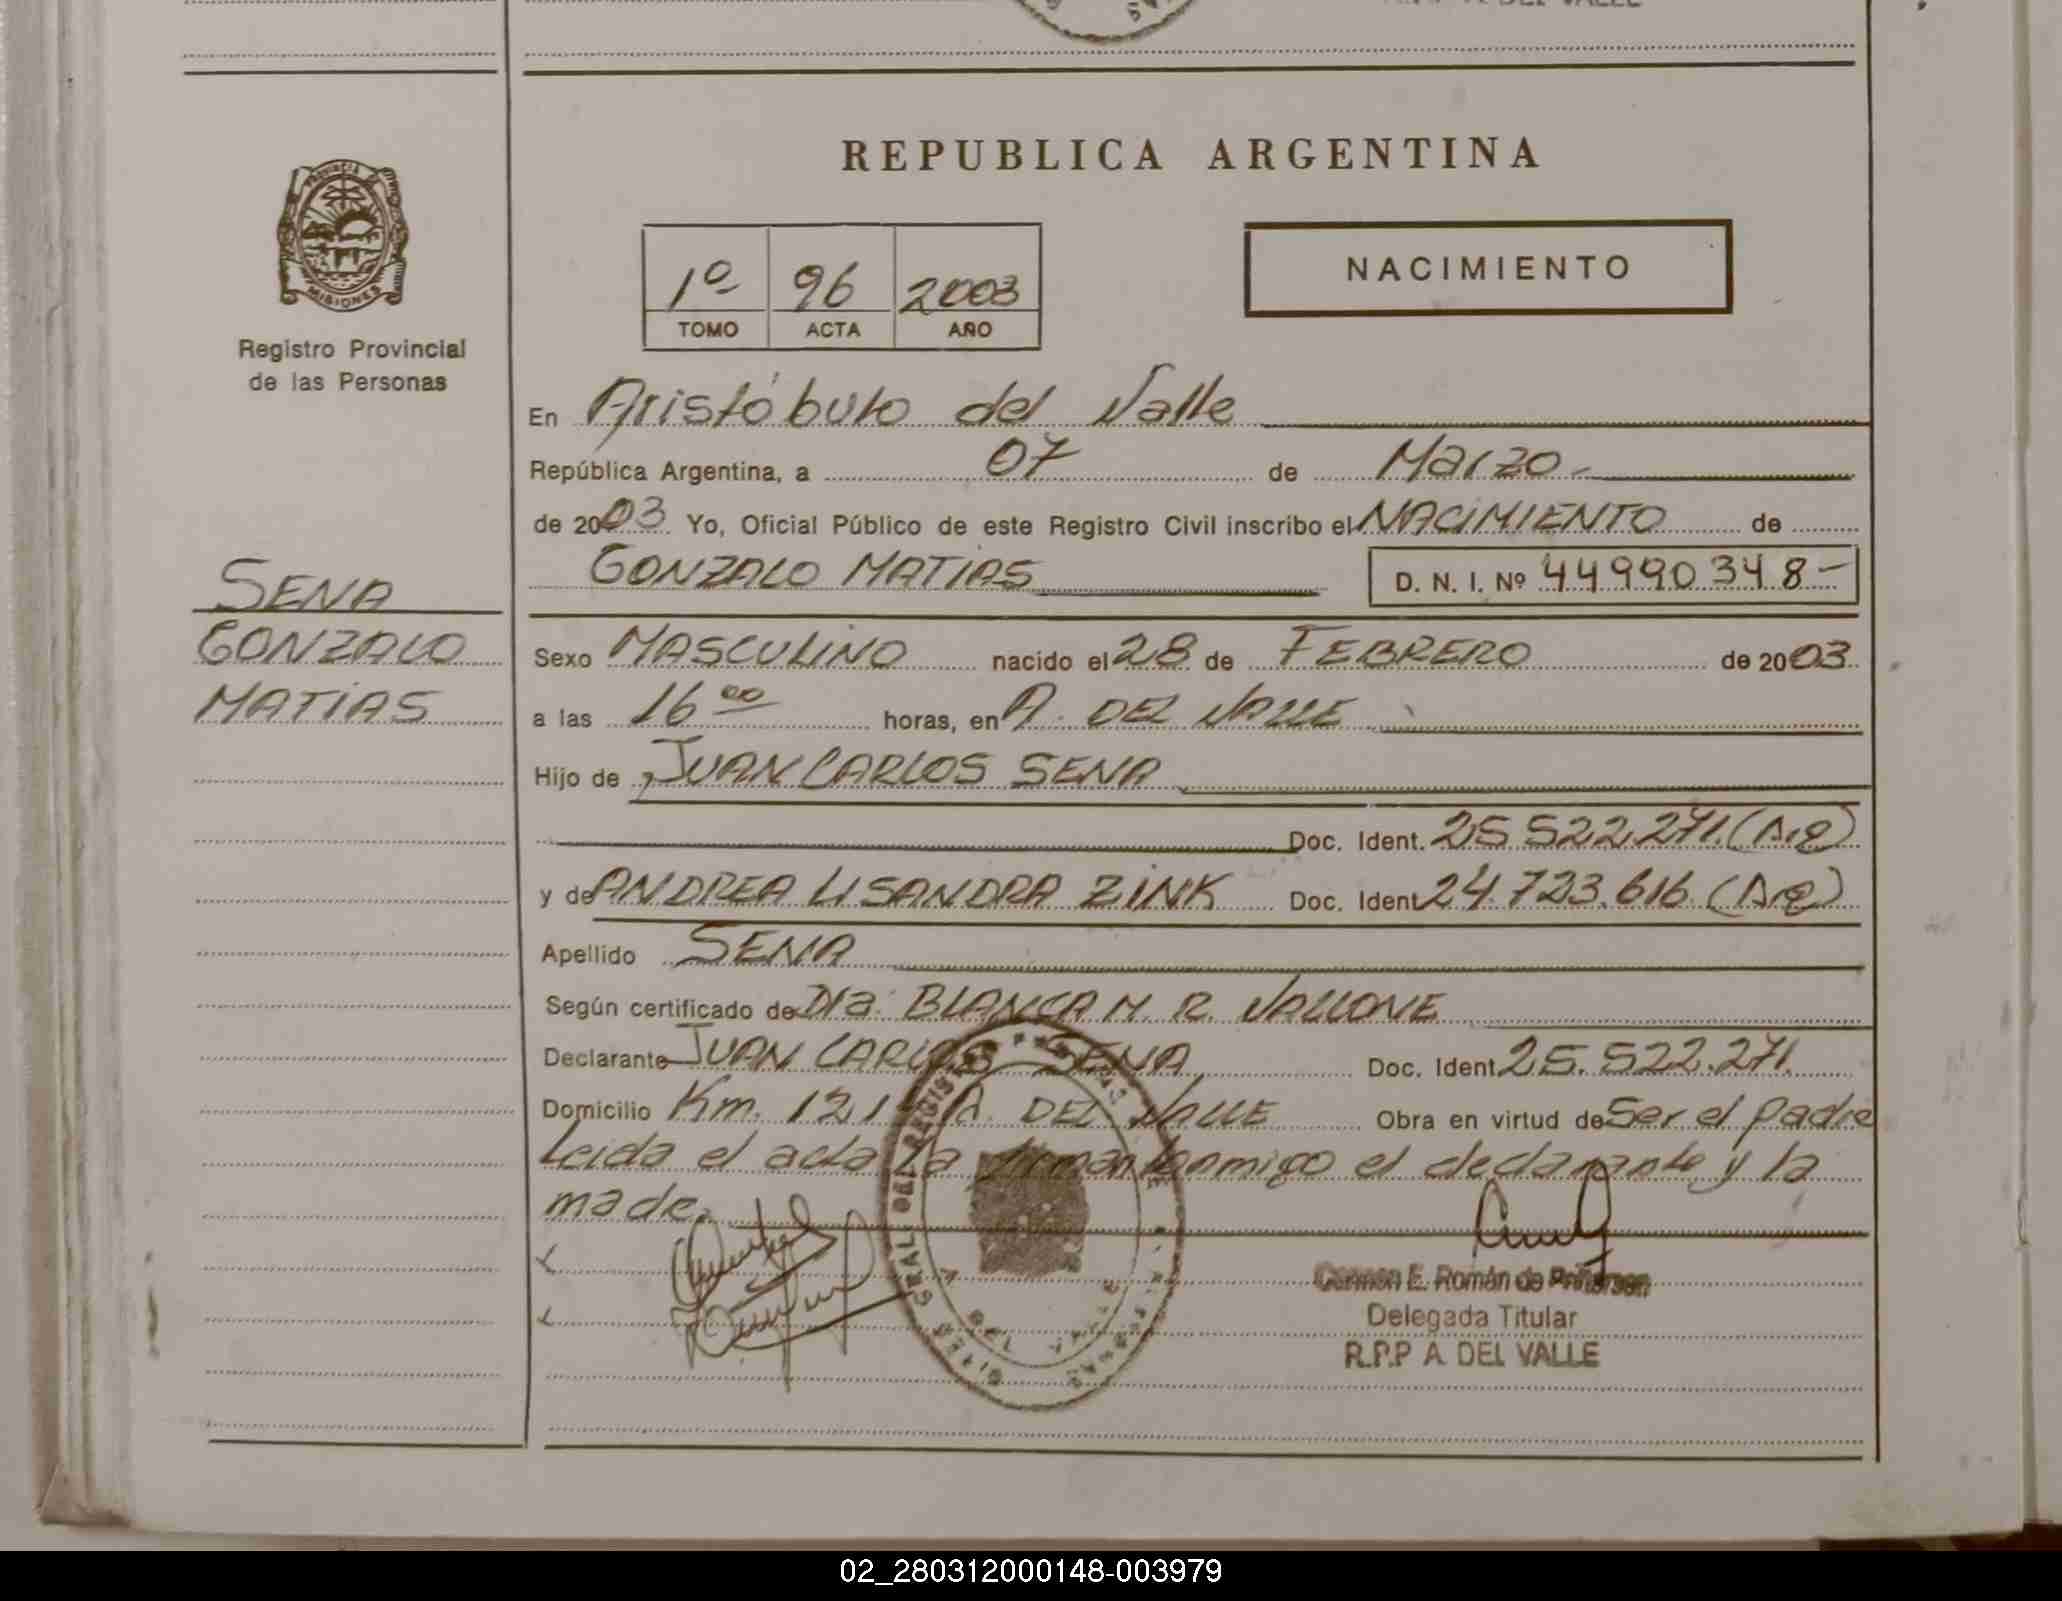 REPUBLICA ARGENTINA
PROVINCIA DE MISIONES
Registro Provincial
de las Personas
1º 96 2003
TOMO ACTA AÑO
NACIMIENTO
En Aristóbulo del Valle
República Argentina, a 07 de Marzo
de 2003 Yo, Oficial Público de este Registro Civil inscribo el NACIMIENTO de
GONZALO MATIAS D. N. I. Nº 44990348-
SENA
GONZALO
MATIAS
Sexo MASCULINO nacido el 28 de FEBRERO de 2003
a las 16 00 horas, en A. DEL VALLE
Hijo de JUAN CARLOS SENA
Doc. Ident. 25.522.271. (Arg)
y de ANDREA LISANDRA ZINK Doc. Ident 24.723.616 (Arg)
Apellido SENA
Según certificado de Dra. BLANCA M. R. VALLONE
Declarante JUAN CARLOS SENA Doc. Ident. 25.522.271.
Domicilio Km. 121 A. DEL VALLE Obra en virtud de Ser el padre
Leida el acta la firman conmigo el declarante y la
madre.
Carmen E. Román de
Delegada Titular
R.P.P A. DEL VALLE
02_280312000148-003979